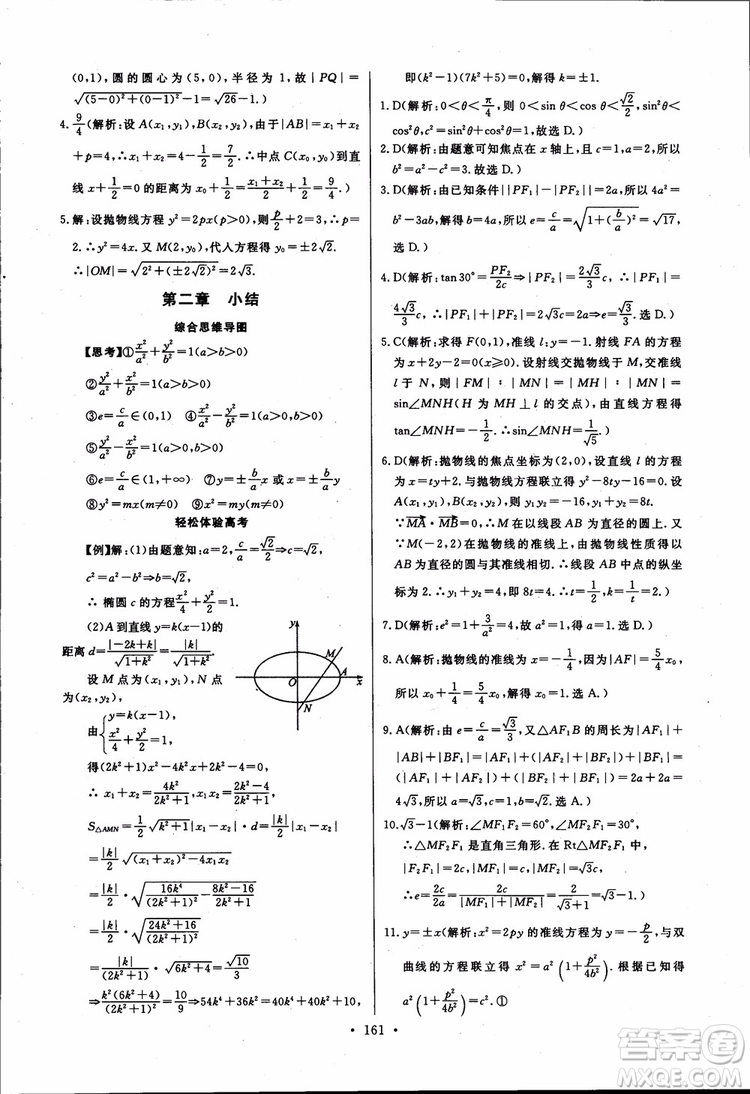 (0,1),圆的圆心为(5,0),半径为1,故|PQ|=
√((5-0)²+(0-1)²)-1=√26-1.)
4. 9/4(解析:设A(x₁,y₁),B(x₂,y₂),由于|AB|=x₁+x₂
+p=4,∴x₁+x₂=4-1/2=7/2.∴中点C(x₀,y₀)到直
线x+1/2=0的距离为x₀+1/2=(x₁+x₂)/2+1/2=9/4.)
5. 解:设抛物线方程y²=2px(p>0),则p/2+2=3,∴p=
2.∴y²=4x.又M(2,y₀),代入方程得y₀=±2√2.
∴|OM|=√(2²+(±2√2)²)=2√3.
第二章 小结
综合思维导图
【思考】①x²/a²+y²/b²=1(a>b>0)
②y²/a²+x²/b²=1(a>b>0)
③e=c/a∈(0,1) ④x²/a²-y²/b²=1
⑤y²/a²-x²/b²=1(a>0,b>0)
⑥e=c/a∈(1,+∞) ⑦y=±(b/a)x或x=±(b/a)y
⑧y²=mx(m≠0) ⑨x²=my(m≠0)
轻松体验高考
【例】解:(1)由题意知:a=2,c/a=√2/2⇒c=√2,
c²=a²-b²⇒b=√2.
∴椭圆c的方程x²/4+y²/2=1.
(2)A到直线y=k(x-1)的
距离d=|-2k+k|/√(1+k²)=|k|/√(1+k²)
设M点为(x₁,y₁),N点
为(x₂,y₂),
由{y=k(x-1)
x²/4+y²/2=1
得(2k²+1)x²-4k²x+2k²-4=0
∴x₁+x₂=4k²/(2k²+1),x₁x₂=(2k²-4)/(2k²+1)
S△AMN=1/2√(k²+1)|x₁-x₂|·d=|k|/2|x₁-x₂|
=|k|/2√((x₁+x₂)²-4x₁x₂)
=|k|/2·√(16k⁴/(2k²+1)²-(8k²-16)/(2k²+1))
=|k|/2·√((24k²+16)/(2k²+1)²)
=|k|/(2k²+1)·√(6k²+4)=√10/3
⇒k²(6k²+4)/(2k²+1)²=10/9⇒54k⁴+36k²=40k⁴+40k²+10,
y
M
O
A
x
N
即(k²-1)(7k²+5)=0,解得k=±1.
1. D(解析:0<θ<π/4,则0<sin θ<cos θ<√2/2,sin²θ+
cos²θ=1,cos²θ+sin²θ=1,故选D.)
2. D(解析:由题意可知焦点在x轴上,且c=1,所以
b²=a²-c²=3.故选D.)
3. D(解析:由已知条件||PF₁|-|PF₂||=2a,所以4a²=
b²-3ab,解得b=4a,所以e=c/a=√(1+(b/a)²)=√17,
选D.)
4. D(解析:tan30°=PF₂/2c⇒|PF₂|=(2√3/3)c⇒|PF₁|=
(4√3/3)c,∴|PF₁|+|PF₂|=2√3c=2a⇒e=√3/3.)
5. C(解析:求得F(0,1),准线l:y=-1.射线FA的方程
为x+2y-2=0(x≥0).设射线交抛物线于M,交准线
l于N,则|FM|∶|MN|=|MH|∶|MN|=
sin∠MNH(H为MH⊥l的交点),由直线方程得
tan∠MNH=-1/2,∴sin∠MNH=1/√5.)
6. D(解析:抛物线的焦点坐标为(2,0),设直线l的方程
为x=ty+2.与抛物线方程联立得y²-8ty-16=0.设
A(x₁,y₁),B(x₂,y₂),∴y₁y₂=-16,y₁+y₂=8t.
∵MA·MB=0,∴M在以线段AB为直径的圆上.又
M(-2,2)在抛物线的准线上,由抛物线性质得以
AB为直径的圆与其准线相切.∴线段AB中点的纵坐
标为2.∴y₁+y₂=4,即8t=4.∴t=1/2,k=1/t=2.)
7. D(解析:e²=1+3/a²=4,故a=1,选D.)
8. A(解析:抛物线的准线为x=-1/4,因为|AF|=5/4x₀,
所以x₀+1/4=5/4x₀,解得x₀=1,选A.)
9. A(解析:由e=c/a=√3/3,又△AF₁B的周长为|AF₁|+
|AB|+|BF₁|=|AF₁|+(|AF₂|+|BF₂|)+
|BF₁|=(|AF₁|+|AF₂|)+(|BF₂|+|BF₁|)=2a+2a=
4√3,所以a=√3,c=1,b²=2,选A.)
10. √3-1(解析:∠MF₁F₂=60°,∠MF₂F₁=30°,
∴△MF₂F₁是直角三角形.在Rt△MF₂F₁中,
|F₂F₁|=2c,|MF₁|=c,|MF₂|=√3c.
∴e=2c/2a=2c/(|MF₁|+|MF₂|)=2/(√3+1)=√3-1.)
11. y=±x(解析:x²=2py的准线方程为y=-p/2,与双
曲线的方程联立得x²=a²(1+p²/4b²).根据已知得
a²(1+p²/4b²)=c².①
• 161 •
答案圈
MXQE.COM